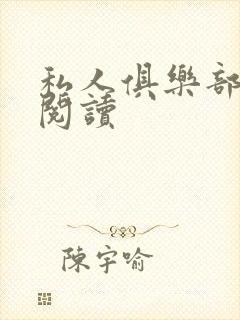 私人俱樂部
閱讀
陳宇喻